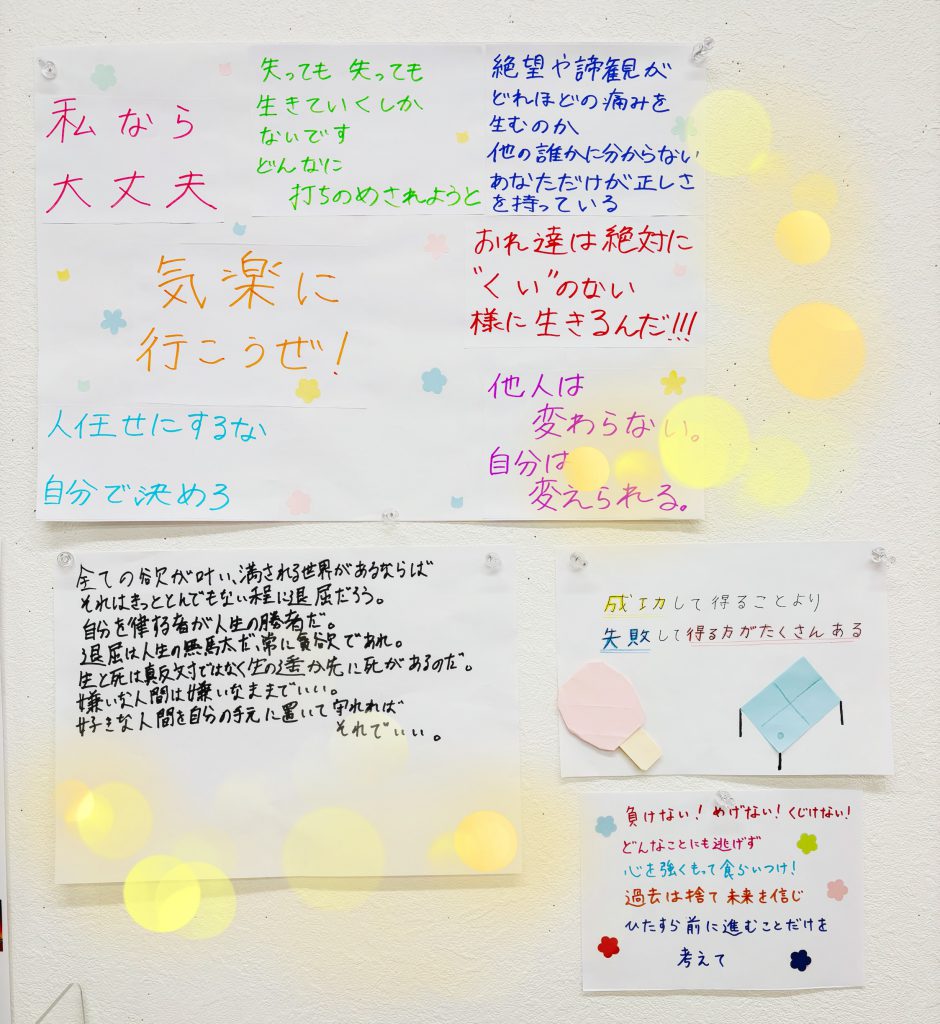 私なら
大丈夫
失っても 失っても
生きていくしか
ないです
どんなに
打ちのめされようと
絶望や諦観が
どれほどの痛みを
生むのか
他の誰かに分からない
あなただけが正しさ
を持っている
気楽に
行こうぜ!
おれ達は絶対に
"くい"のない
様に生きるんだ!!!
人任せにするな
自分で決めろ
他人は
変わらない。
自分は
変えられる。
全ての欲が叶い、満される世界があるならば
それはきっととんでもない程に退屈だろう。
自分を律する者が人生の勝者だ。
退屈は人生の黒馬太だ、常に貪欲であれ。
生と死は真反対ではなく生の遥か先に死があるのだ。
嫌いな人間は嫌いなままでいい。
好きな人間を自分の手元に置いて守れれば
それでいい。
成功して得ることより
失敗して得る方がたくさんある
負けない!めげない!くじけない!
どんなことにも逃げず
心を強くもって食らいつけ!
過去は捨て未来を信じ
ひたすら前に進むことだけを
考えて